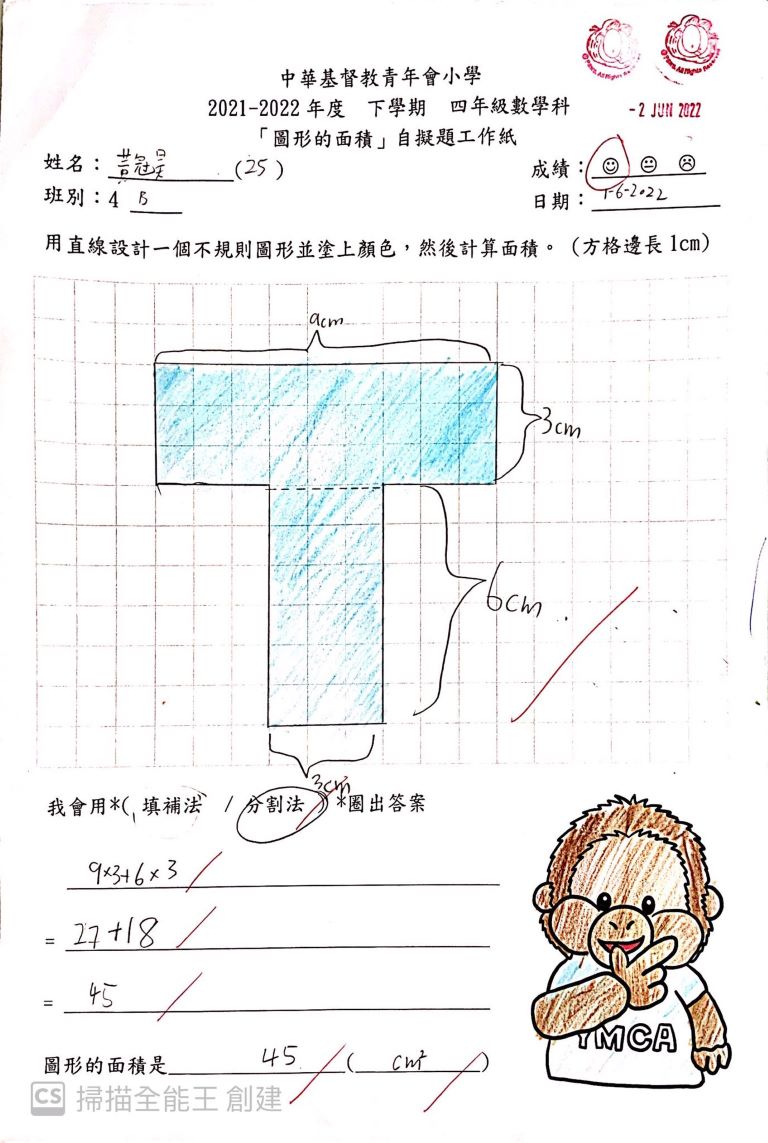 中華基督教青年會小學
2021-2022 年度 下學期 四年級數學科
- 2 JUN 2022
「圖形的面積」自擬題工作紙
姓名：黃冠昊 (25)
成績：
班別：4 B
日期：1-6-2022
用直線設計一個不規則圖形並塗上顏色，然後計算面積。(方格邊長 1cm)
9cm
3cm
6cm
3cm
我會用*( 填補法 / 分割法 ) *圈出答案
9×3+6×3
= 27+18
= 45
圖形的面積是 45 ( cm² )
YMCA
CS 掃描全能王 創建